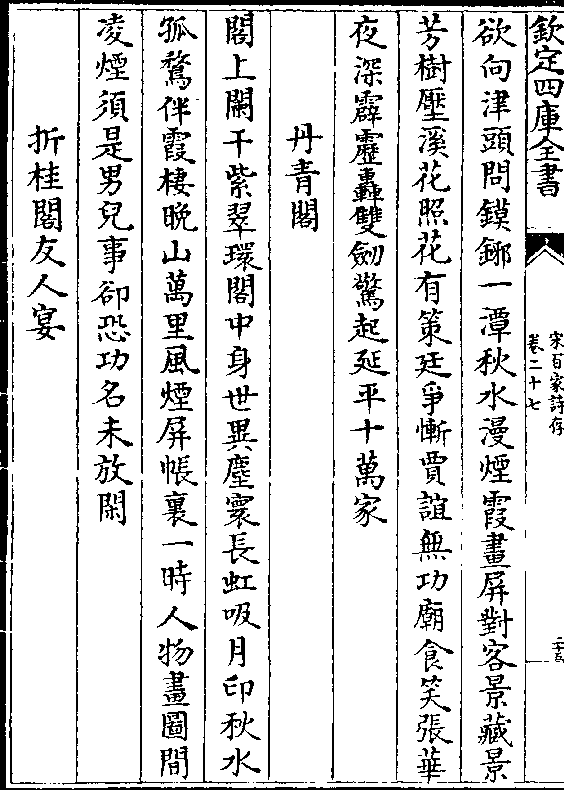 欽定四庫全書
宋百家詩存
卷二十七
欲向津頭問鏌鋣一潭秋水漫煙霞畫屏對客景藏景
芳樹壓溪花照花有策廷爭慚賈誼無功廟食笑張華
夜深霹靂轟雙劍驚起延平十萬家
丹青閣
閣上闌干紫翠環閣中身世異塵寰長虹吸月印秋水
孤鶩伴霞棲晚山萬里風煙屏帳裏一時人物畫圖間
凌煙須是男兒事卻恐功名未放閑
折桂閣友人宴